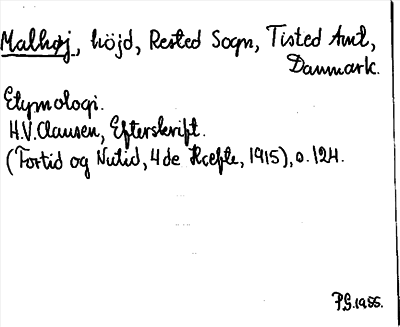 Malhøj, höjd, Rested Sogn, Tisted Amt,
Danmark.
Etymologi.
H.V. Clausen, Efterskrift.
(Fortid og Nutid, 4de Hæfte, 1915), s. 124.
P.G. 1955.